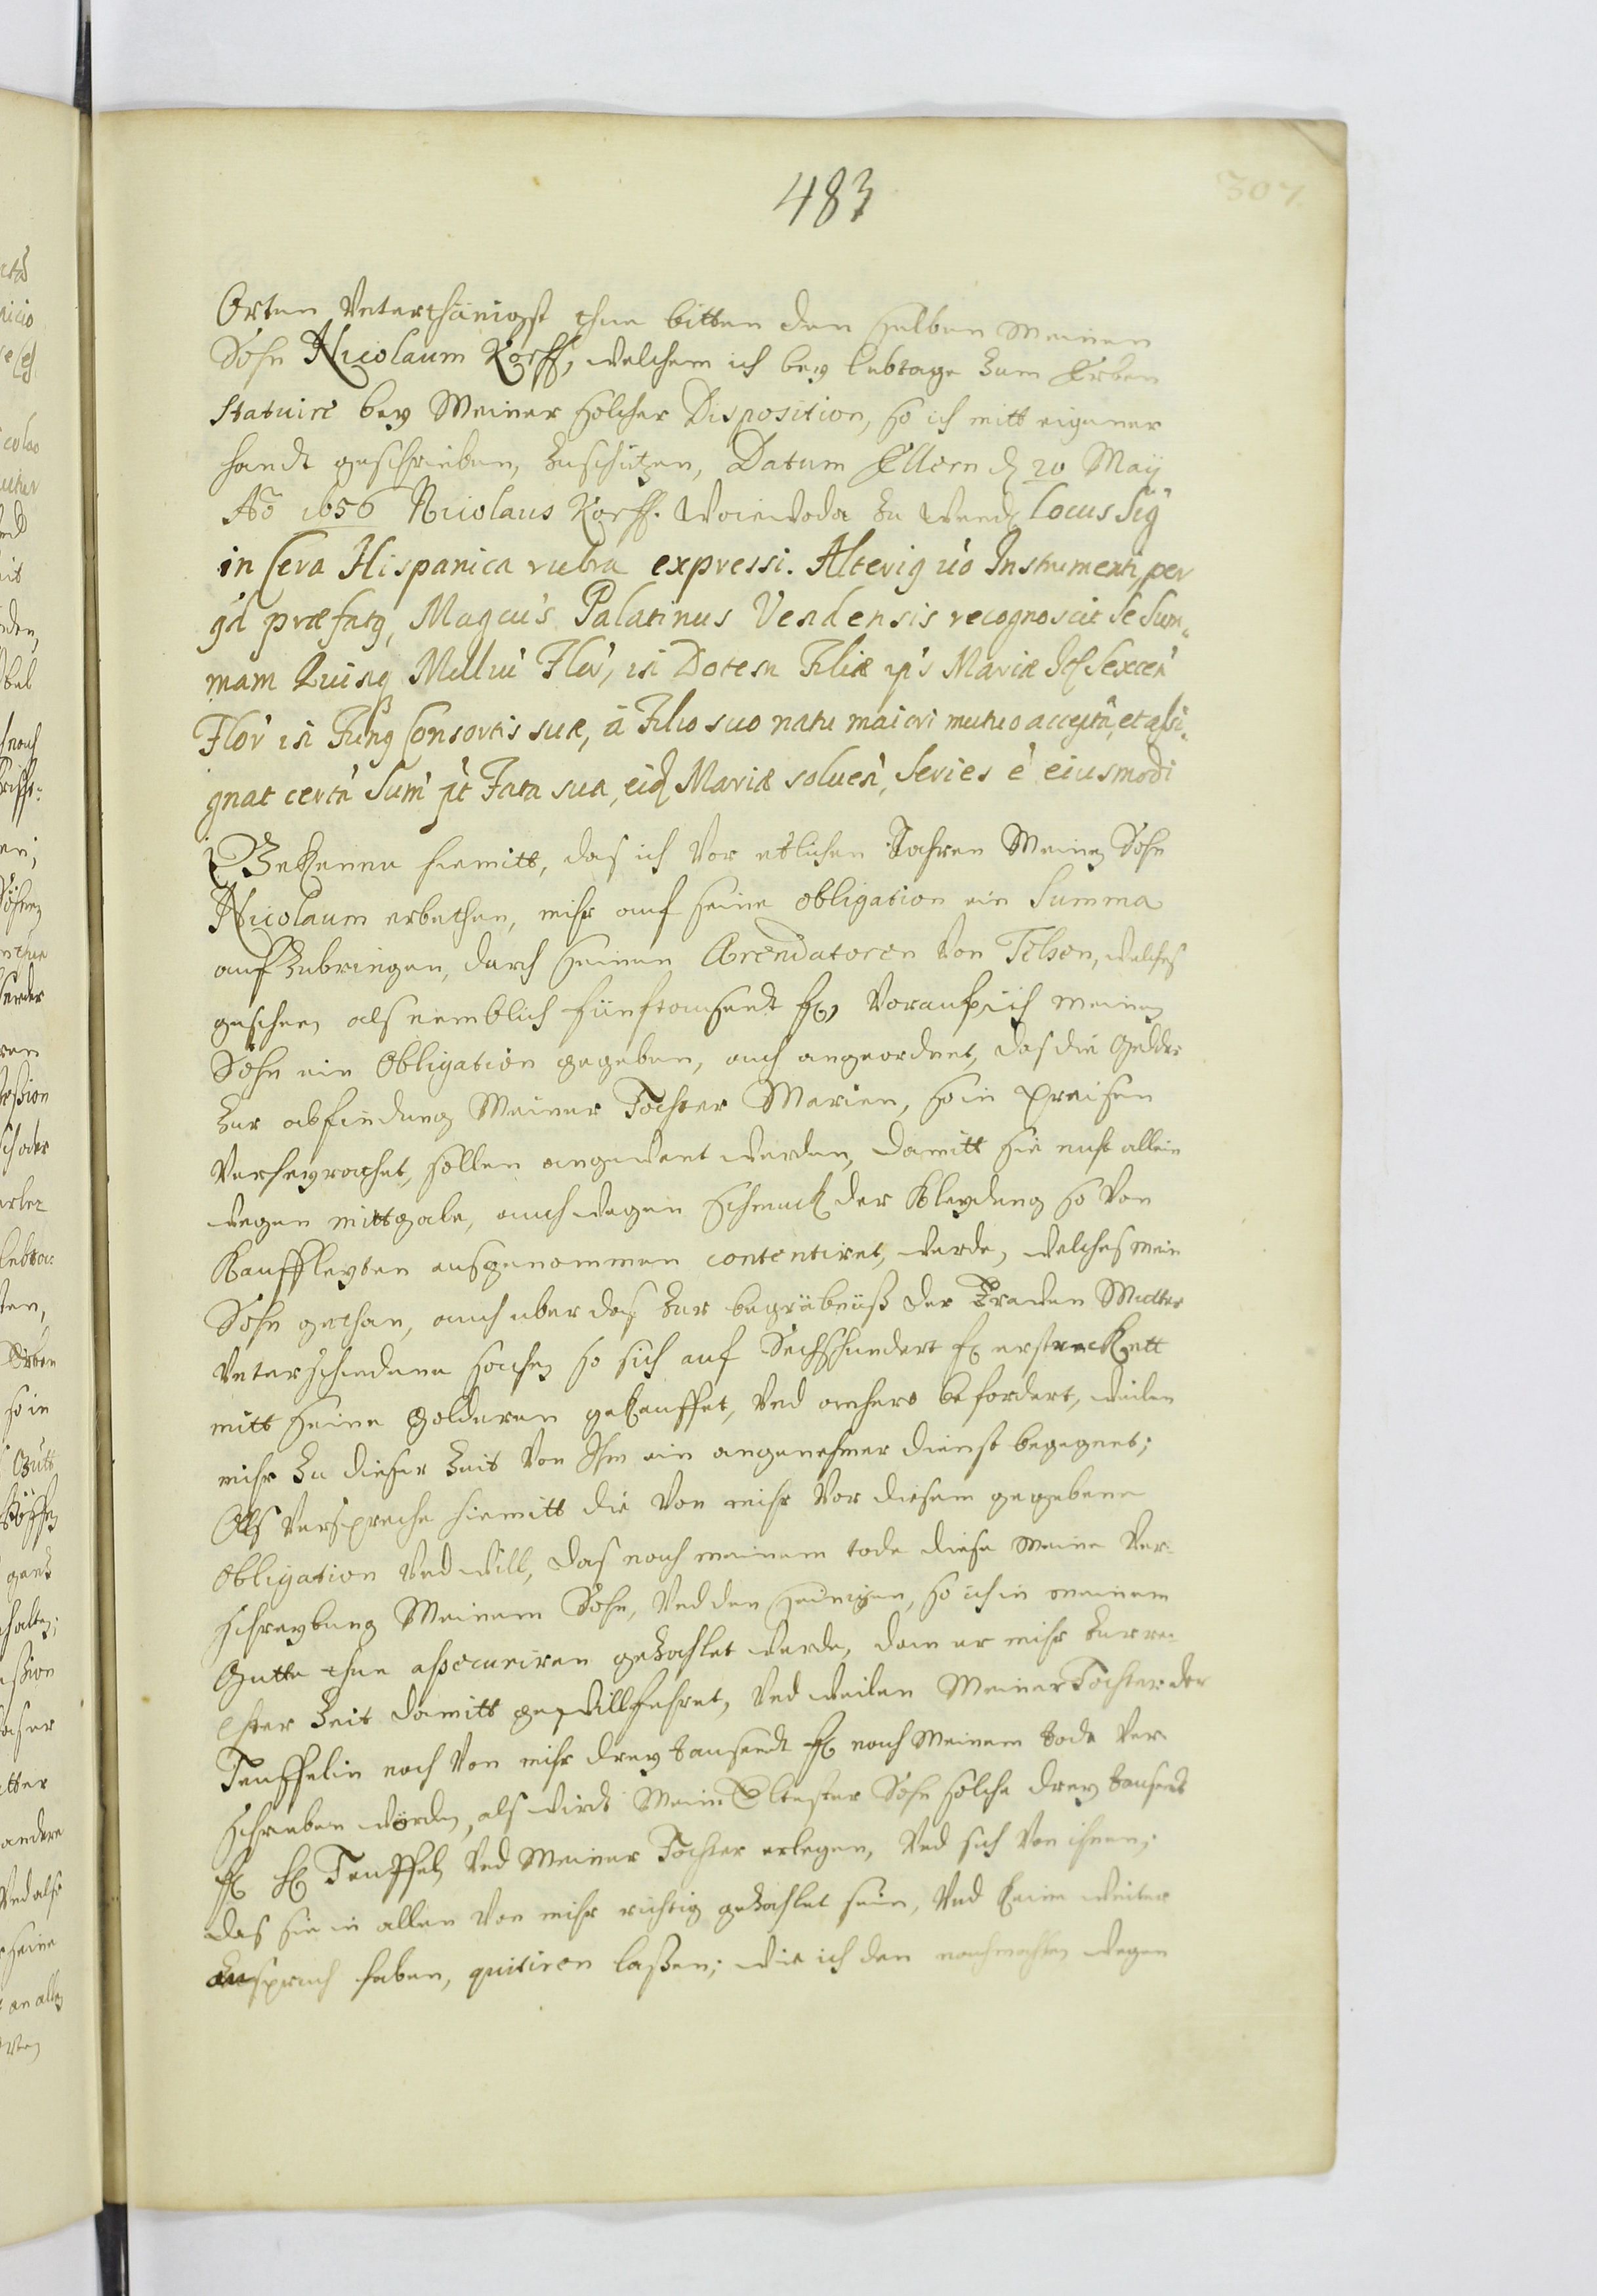 483
307
Orten Vnterthänigst thue bitten den selben Meinen
Sohn Nicolaum Korff, welchem ich bey lebtage zum Erben
Statuire bey Meiner solcher Disposition, so ich mitt eigener
handt geschrieben, zuschützen, Datum Ellern d 20 Maÿ
Ao 1656 Nicolaus Korff. Woiewoda zu Wend Locus Sig
in Cera Hispanica rubra expressi. Alterig vo Instrumenti, per
qd præfatq, Magcus Palatinus Vendensis recognoscit se Sum„
mam Quinq Milliu Flor, in Dotem Filiæ ips Mariæ Scz Sexcen
Flor in Funq Consortis suæ, à Filio suo natu maiori mutuo acceptã, et assi„
gnat certã Sum pt Fata sua, eid Mariæ soluen, Series e eiusmodi
Bekenne hiemitt, das ich Vor etlichen Jahren Meinen Sohn
Nicolaum erbethen, mihr auf seine obligation ein Summa
auf zubringen, durch seinen Arendatoren Von Telsen, welches
geschen als nemblich fünftausendt fl, Vorauf ich meinen
Sohn ein Obligation gegeben, auch angeordnet, das die Gelder
zur abfindung Meiner Tochter Marien, so in Preisen
Verheyrathet, sollen angewent werden, damitt sie nicht allein
wegen mittgabe, auch wegen schmuck der Kleydung so Von
Kauffleyten ausgenommen contentiret, werde, welches mein
Sohn gethan, auch uber das zur begräbnüß der Frauen Mutter
Vnterschiedene sachen so sich auf Sechshundert fl erstreckett
mitt seine gelderen gekauffet, Vnd anhero befordert, weilen
mihr zu dieser Zeit Von Ihm ein angenehmer dienst begegnet;
Als Verspreche hiemitt die Von mihr Vor diesem gegebene
Obligation Vnd will, das nach meinem tode diese Meine Ver-
schreybung Meinem Sohn, Vnd den seinigen, so ich in meinem
Gutte thue assecuriren gezahlet werde, den er mihr zur re-
chter Zeit damitt gewillfahret, Vnd weilen Meiner Tochter der
Teuffelin noch Von mihr drey tausendt fl nach Meinem todt Ver-
schrieben worden, als wirdt Mein Eltester Sohn solche drey tausendt
fl H Teuffel Vnd Meiner Tochter erlegen, Vnd sich Von ihnen,
das sie in allen Von mihr richtig gezahlet sein, Vnd keine weiter
Zuspruch haben, quitiren laßen; wie ich den nachmahlen wegen